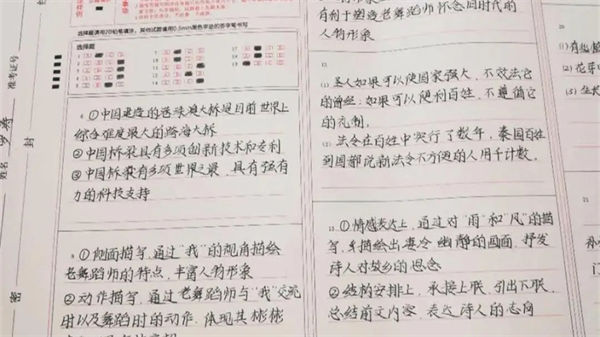 选择题请用2B铅笔填涂，其他试题请用0.5mm黑色字迹的签字笔书写
选择题
准考证号
姓名
封
密
6. ①中国建造的港珠澳大桥是目前世界上
综合难度最大的跨海大桥
②中国桥梁具有多项创新技术和专利
③中国桥梁有多项世界之最，具有强有
力的科技支持
8. ①侧面描写，通过“我”的视角描绘
老舞蹈师的特点，丰富人物形象
②动作描写，通过老舞蹈师与“我”交流
时以及舞蹈时的动作，体现其彬彬
有利于塑造老舞蹈师怀念旧时代的
人物形象
(1) 圣人如果可以使国家强大，不效法它
的旧法；如果可以使利百姓，不遵循它
的礼制。
(2) 法令在百姓中实行了数年，秦国百姓
到国都说新法令不方便的人用千计数。
15. ①情感表达上，通过对“雨”和“风”的描
写，描绘出凄冷幽静的画面，抒发
诗人对故乡的思念
②结构安排上，承接上联，引出下联，
总结前文内容，表达诗人的志向
20
21